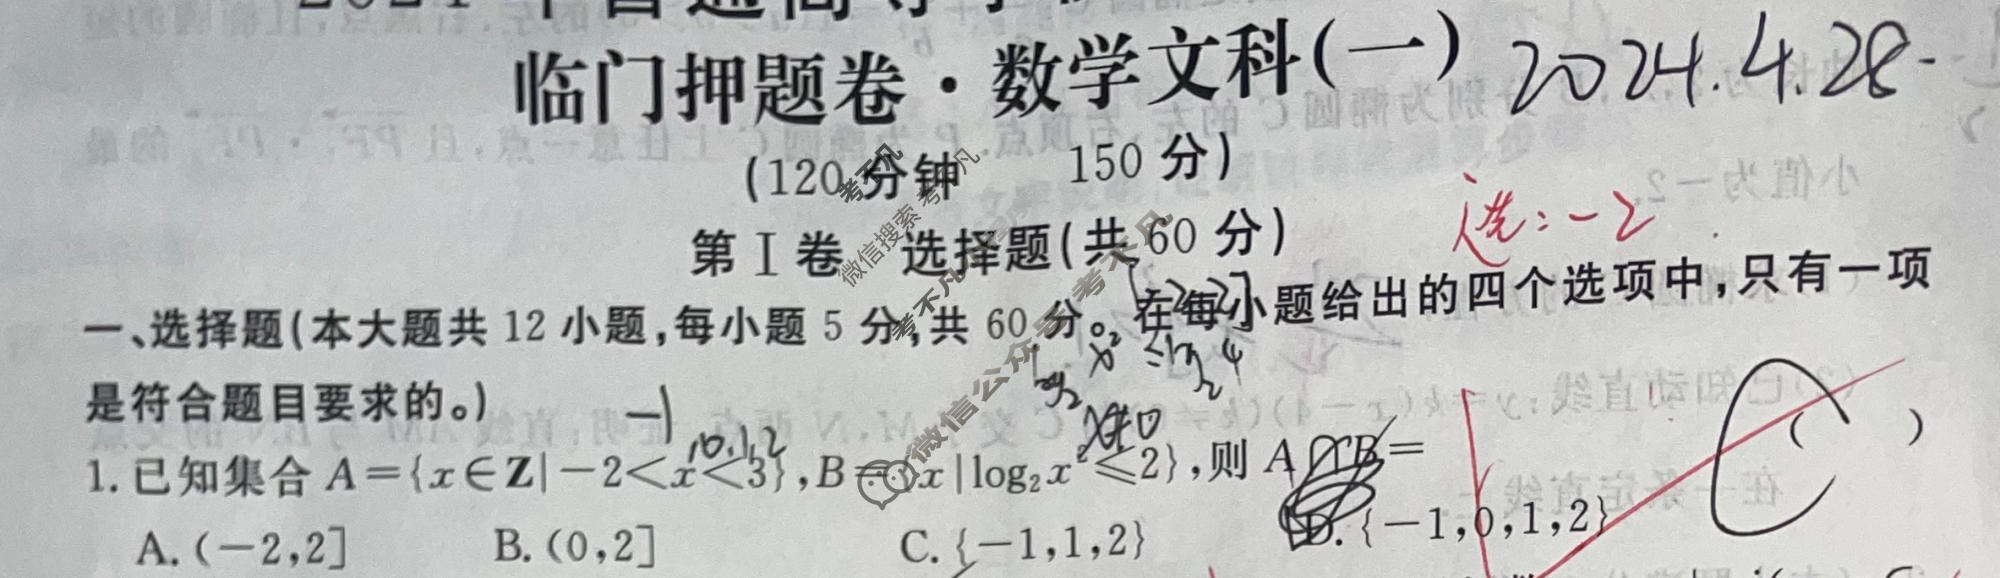 临门押题卷·数学文科(一) 2024.4.28.
(120分钟 150分)
选:-2
第Ⅰ卷 选择题(共60分)
[-2,2]
一、选择题(本大题共12小题,每小题5分,共60分。在每小题给出的四个选项中,只有一项
log₂x²≤log₂4
是符合题目要求的。)
-1
0.1.2
x≠0
1. 已知集合A={x∈Z|-2<x<3},B={x|log₂x²≤2},则A∩B= ( )
C
A. (-2,2] B. (0,2] C. {-1,1,2} D. {-1,0,1,2}
考不凡
微信搜索 考不凡
微信公众号:考不凡